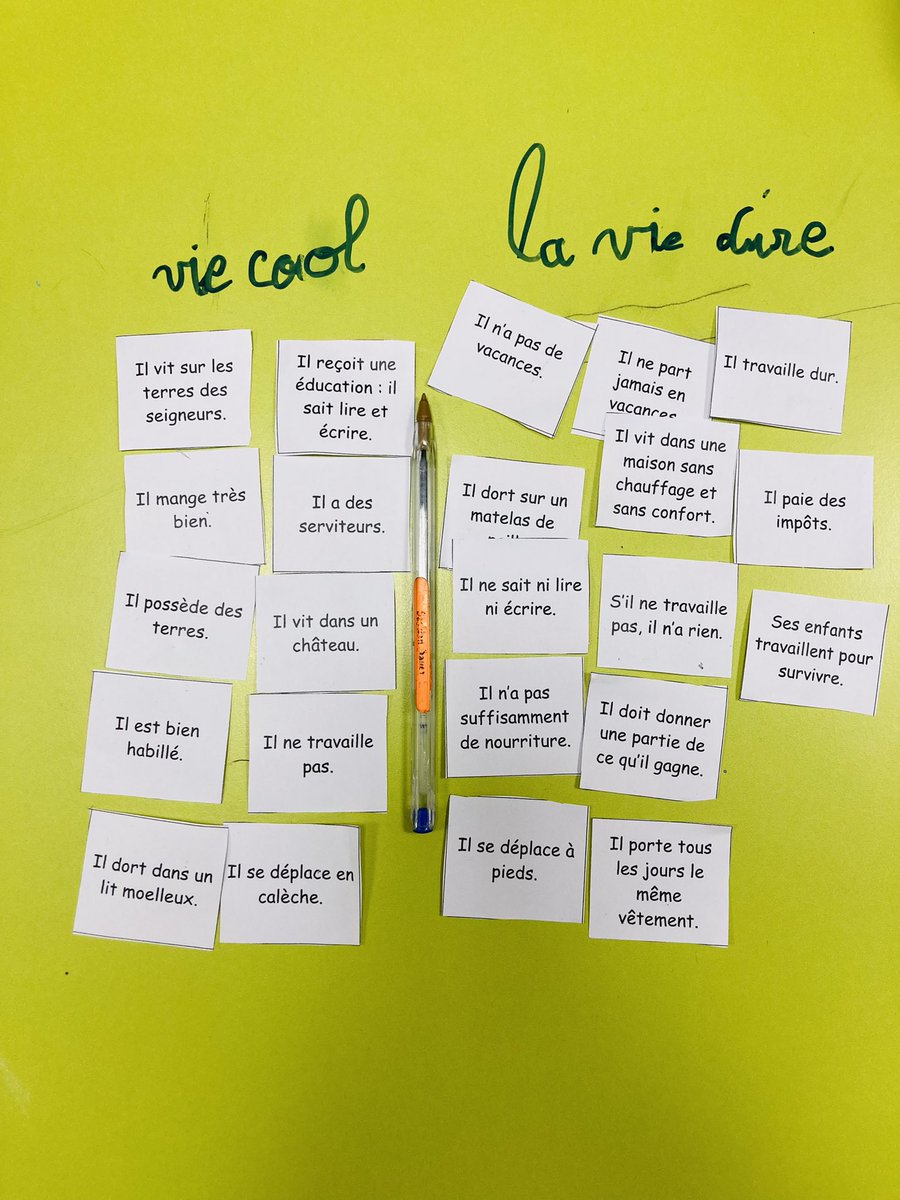 vie cool
la vie dure
Il vit sur les
terres des
seigneurs.
Il reçoit une
éducation : il
sait lire et
écrire.
Il mange très
bien.
Il a des
serviteurs.
Il possède des
terres.
Il vit dans un
château.
Il est bien
habillé.
Il ne travaille
pas.
Il dort dans un
lit moelleux.
Il se déplace en
calèche.
Il n'a pas de
vacances.
Il ne part
jamais en
vacances
Il travaille dur.
Il dort sur un
matelas de
Il vit dans une
maison sans
chauffage et
sans confort.
Il paie des
impôts.
Il ne sait ni lire
ni écrire.
S'il ne travaille
pas, il n'a rien.
Ses enfants
travaillent pour
survivre.
Il n'a pas
suffisamment
de nourriture.
Il doit donner
une partie de
ce qu'il gagne.
Il se déplace à
pieds.
Il porte tous
les jours le
même
vêtement.